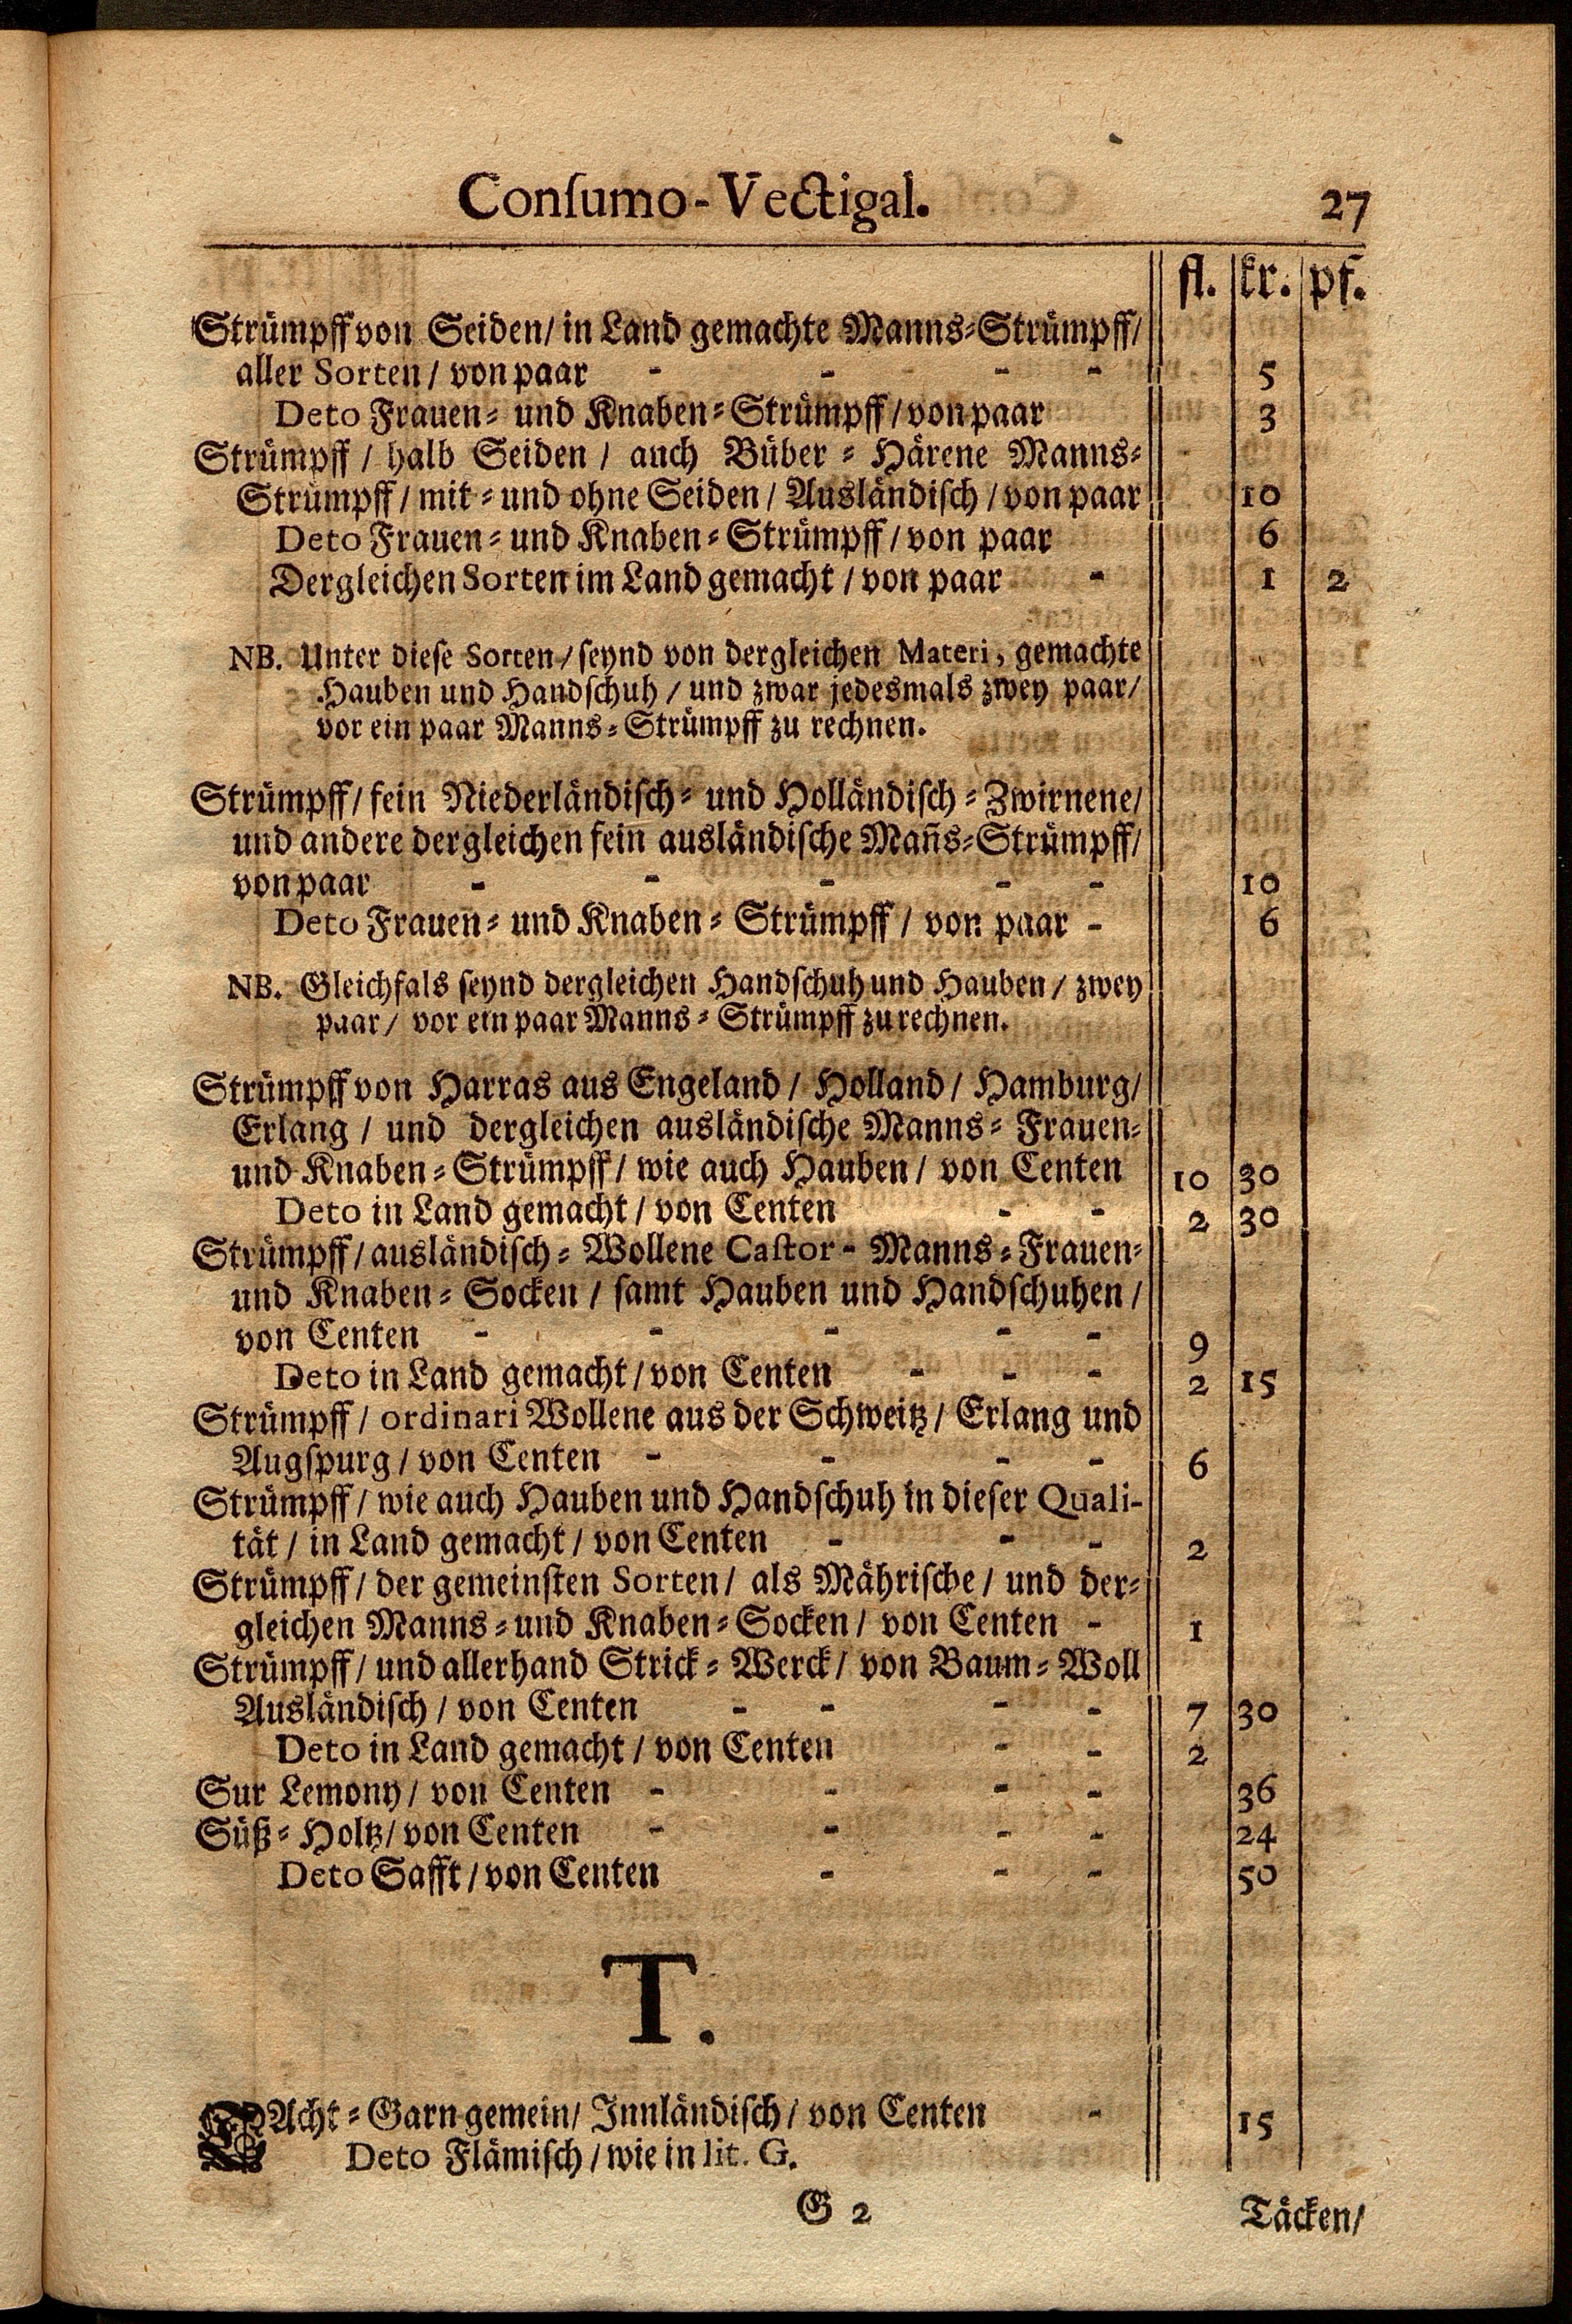 Consumo-Vectigal. 27
fl. kr. pf.
Strümpff von Seiden/ in Land gemachte Manns-Strümpff/
aller Sorten / von paar - - - - 5
Deto Frauen- und Knaben-Strümpff / von paar 3
Strümpff / halb Seiden / auch Büber-Härene Manns-
Strümpff / mit- und ohne Seiden / Ausländisch / von paar 10
Deto Frauen- und Knaben-Strümpff / von paar 6
Dergleichen Sorten im Land gemacht / von paar - 1 2
NB. Unter diese Sorten / seynd von dergleichen Materi, gemachte
Hauben und Handschuh / und zwar jedesmals zwey paar/
vor ein paar Manns-Strümpff zu rechnen.
Strümpff / fein Niederländisch- und Holländisch-Zwirnene/
und andere dergleichen fein ausländische Mañs-Strümpff/
von paar - - - - - 10
Deto Frauen- und Knaben-Strümpff / von paar - 6
NB. Gleichfals seynd dergleichen Handschuh und Hauben / zwey
paar / vor ein paar Manns-Strümpff zu rechnen.
Strümpff von Harras aus Engeland / Holland / Hamburg/
Erlang / und dergleichen ausländische Manns-Frauen-
und Knaben-Strümpff / wie auch Hauben / von Centen 10 30
Deto in Land gemacht / von Centen - - 2 30
Strümpff / ausländisch-Wollene Castor-Manns-Frauen-
und Knaben-Socken / samt Hauben und Handschuhen /
von Centen - - - - - 9
Deto in Land gemacht / von Centen - - - 2 15
Strümpff / ordinari Wollene aus der Schweitz / Erlang und
Augspurg / von Centen - - - - 6
Strümpff / wie auch Hauben und Handschuh in dieser Quali-
tät / in Land gemacht / von Centen - - - 2
Strümpff / der gemeinsten Sorten / als Mährische / und der-
gleichen Manns-und Knaben-Socken / von Centen - 1
Strümpff / und allerhand Strick-Werck / von Baum-Woll
Ausländisch / von Centen - - - - 7 30
Deto in Land gemacht / von Centen - - 2
Sur Lemony / von Centen - - - - 36
Süß-Holtz / von Centen - - - - 24
Deto Safft / von Centen - - - 50
T.
TAcht-Garn gemein / Innländisch / von Centen - 15
Deto Flämisch / wie in lit. G.
G 2 Täcken/